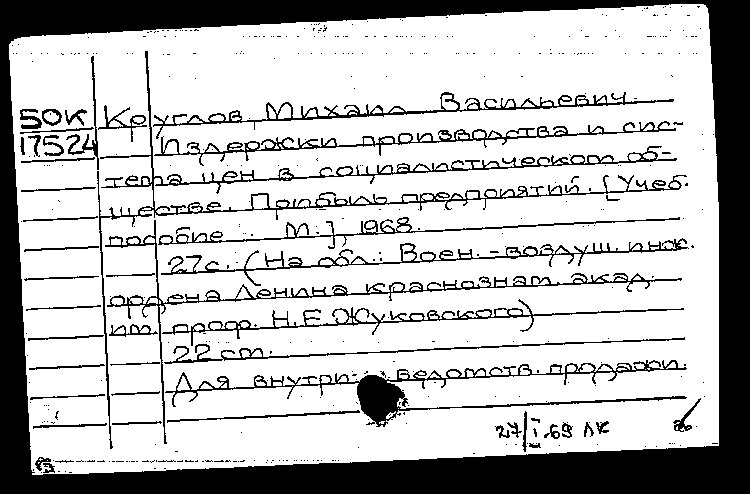 50К Круглов, Михаил Васильевич.
17524 Издержки производства и сис-
тема цен в социалистическом об-
ществе. Прибыль предприятий. [Учеб.
пособие. М.], 1968.
27 с. (На обл.: Воен.-воздуш. инж.
ордена Ленина краснознам. акад.
им. проф. Н.Е.Жуковского)
22 см.
Для внутриведомств. продажи.
27/I.69 ЛК